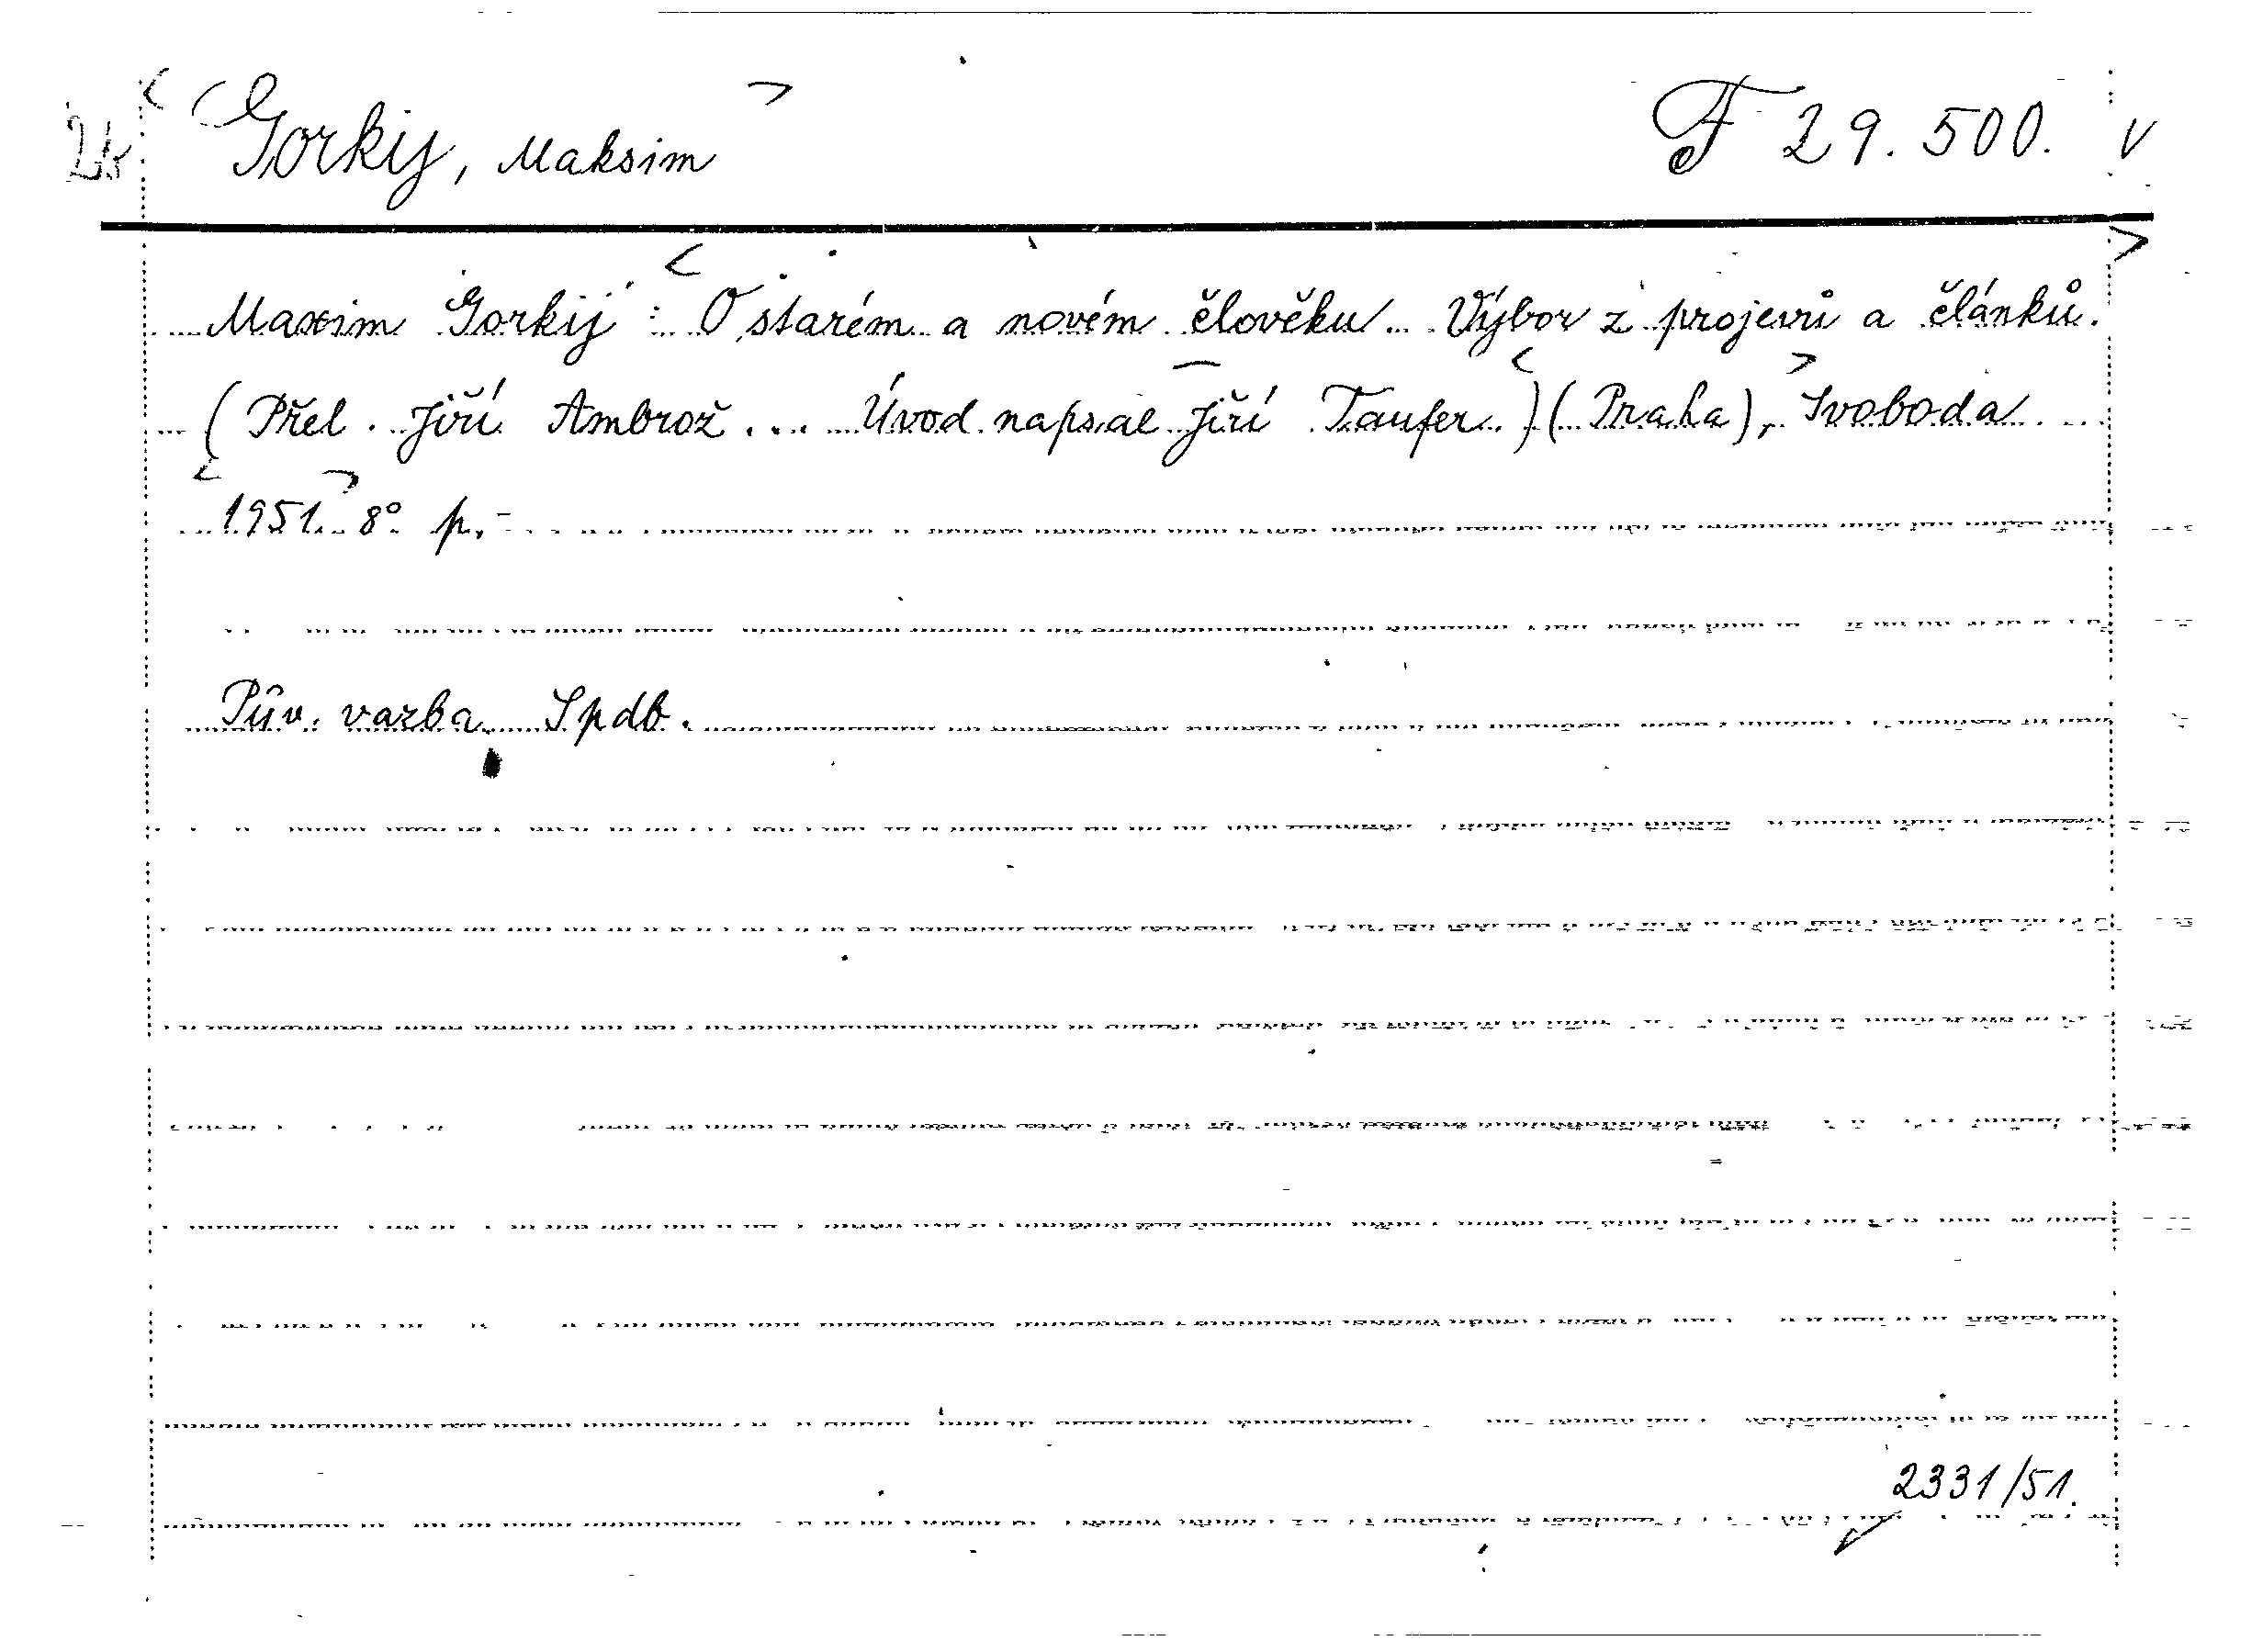 Gorkij, Maksim F 29.500. V
Maxim Gorkij : O starém a novém člověku. Výbor z projevů a článků.
(Přel. Jiří Ambrož... Úvod napsal Jiří Taufer.) (Praha), Svoboda
1951. 8° p.-
Pův. vazba. Spdb.
2331/51.